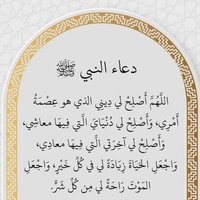 دعاء النبي ﷺ
اللَّهُمَّ أَصْلِحْ لِي دِينِي الذي هو عِصْمَةُ
أَمْرِي، وَأَصْلِحْ لي دُنْيَايَ الَّتي فِيهَا معاشِي،
وَأَصْلِحْ لي آخِرَتي الَّتي فِيهَا معادِي،
وَاجْعَلِ الحَيَاةَ زِيَادَةً لي في كُلِّ خَيْرٍ، وَاجْعَلِ
المَوْتَ رَاحَةً لي مِن كُلِّ شَرٍّ.